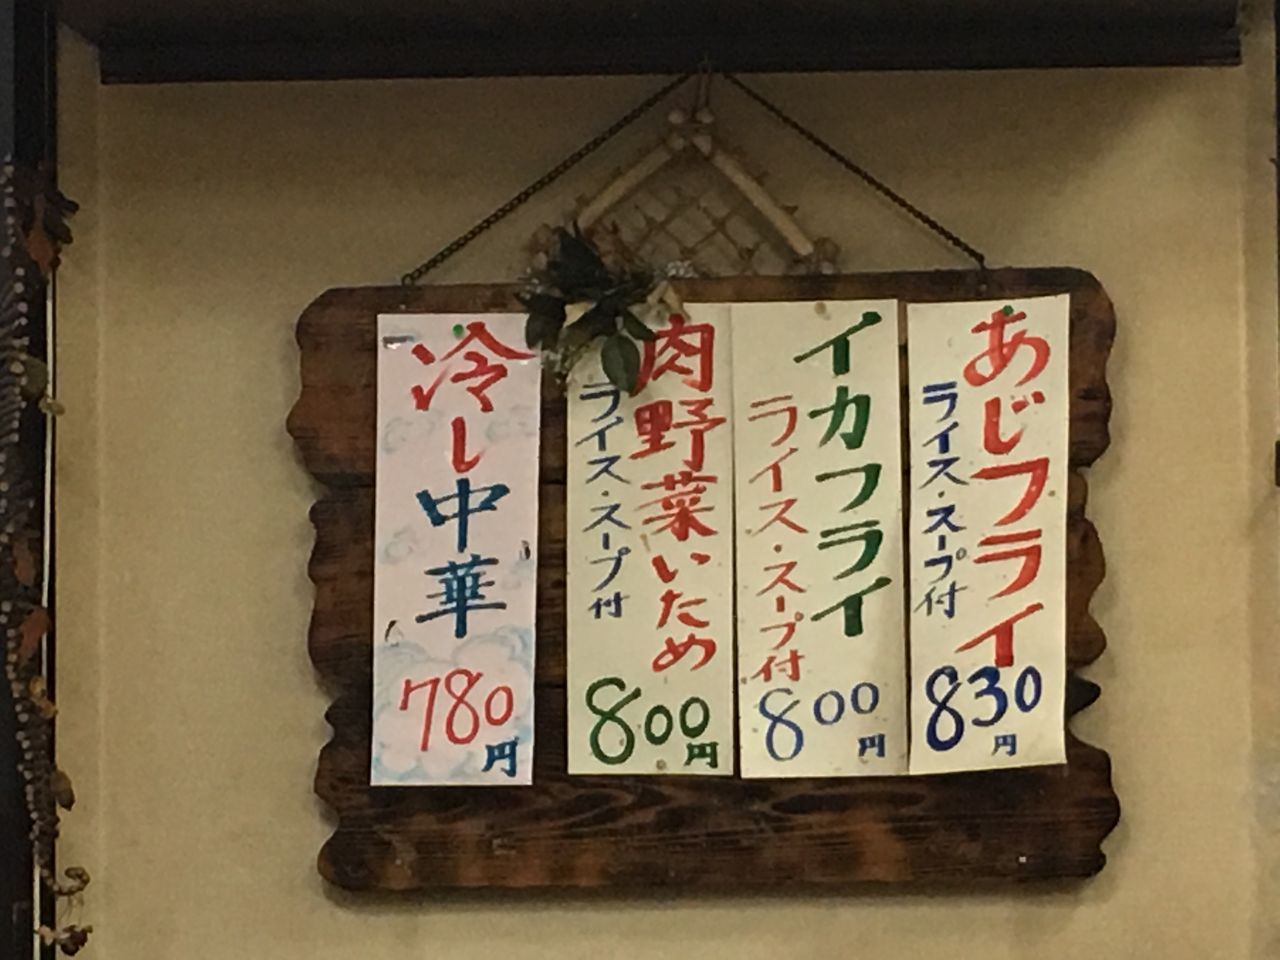 あじフライ
ライス・スープ付
830円
イカフライ
ライス・スープ付
800円
肉野菜いため
ライス・スープ付
800円
冷し中華
780円